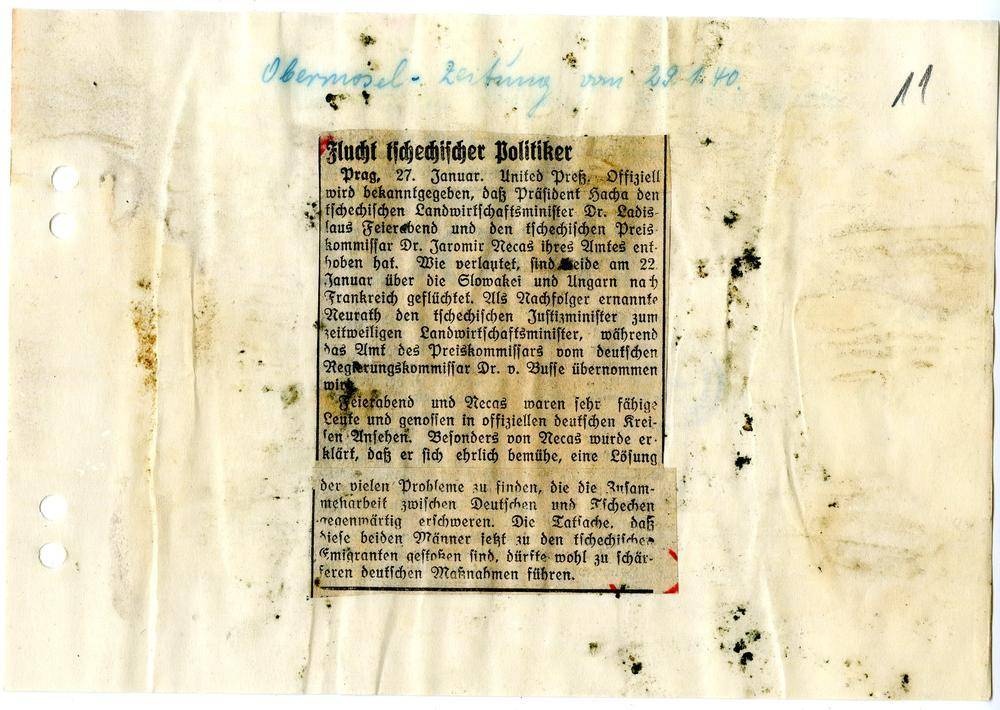 Obermosel-Zeitung vom 29.1.40.
11
Flucht tschechischer Politiker
Prag, 27. Januar. United Preß. Offiziell
wird bekanntgegeben, daß Präsident Hacha den
tschechischen Landwirtschaftsminister Dr. Ladis-
laus Feierabend und den tschechischen Preis-
kommissar Dr. Jaromir Necas ihres Amtes ent-
hoben hat. Wie verlautet, sind beide am 22.
Januar über die Slowakei und Ungarn nach
Frankreich geflüchtet. Als Nachfolger ernannte
Neurath den tschechischen Justizminister zum
zeitweiligen Landwirtschaftsminister, während
das Amt des Preiskommissars vom deutschen
Regierungskommissar Dr. v. Busse übernommen
wird.
Feierabend und Necas waren sehr fähige
Leute und genossen in offiziellen deutschen Krei-
sen Ansehen. Besonders von Necas wurde er-
klärt, daß er sich ehrlich bemühe, eine Lösung
der vielen Probleme zu finden, die die Zusam-
menarbeit zwischen Deutschen und Tschechen
gegenwärtig erschweren. Die Tatsache, daß
diese beiden Männer jetzt zu den tschechischen
Emigranten gestoßen sind, dürfte wohl zu schär-
feren deutschen Maßnahmen führen.